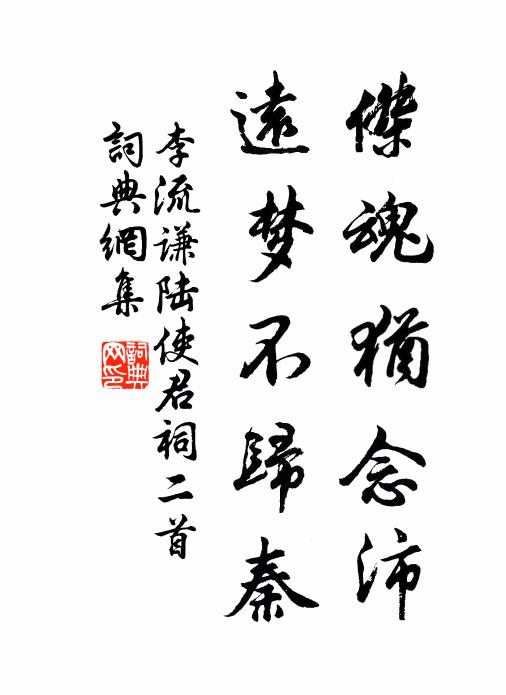 傑魂猶念沛
遠梦不歸秦
李流謙陆使君祠二首
詞典網集
詞典
网印